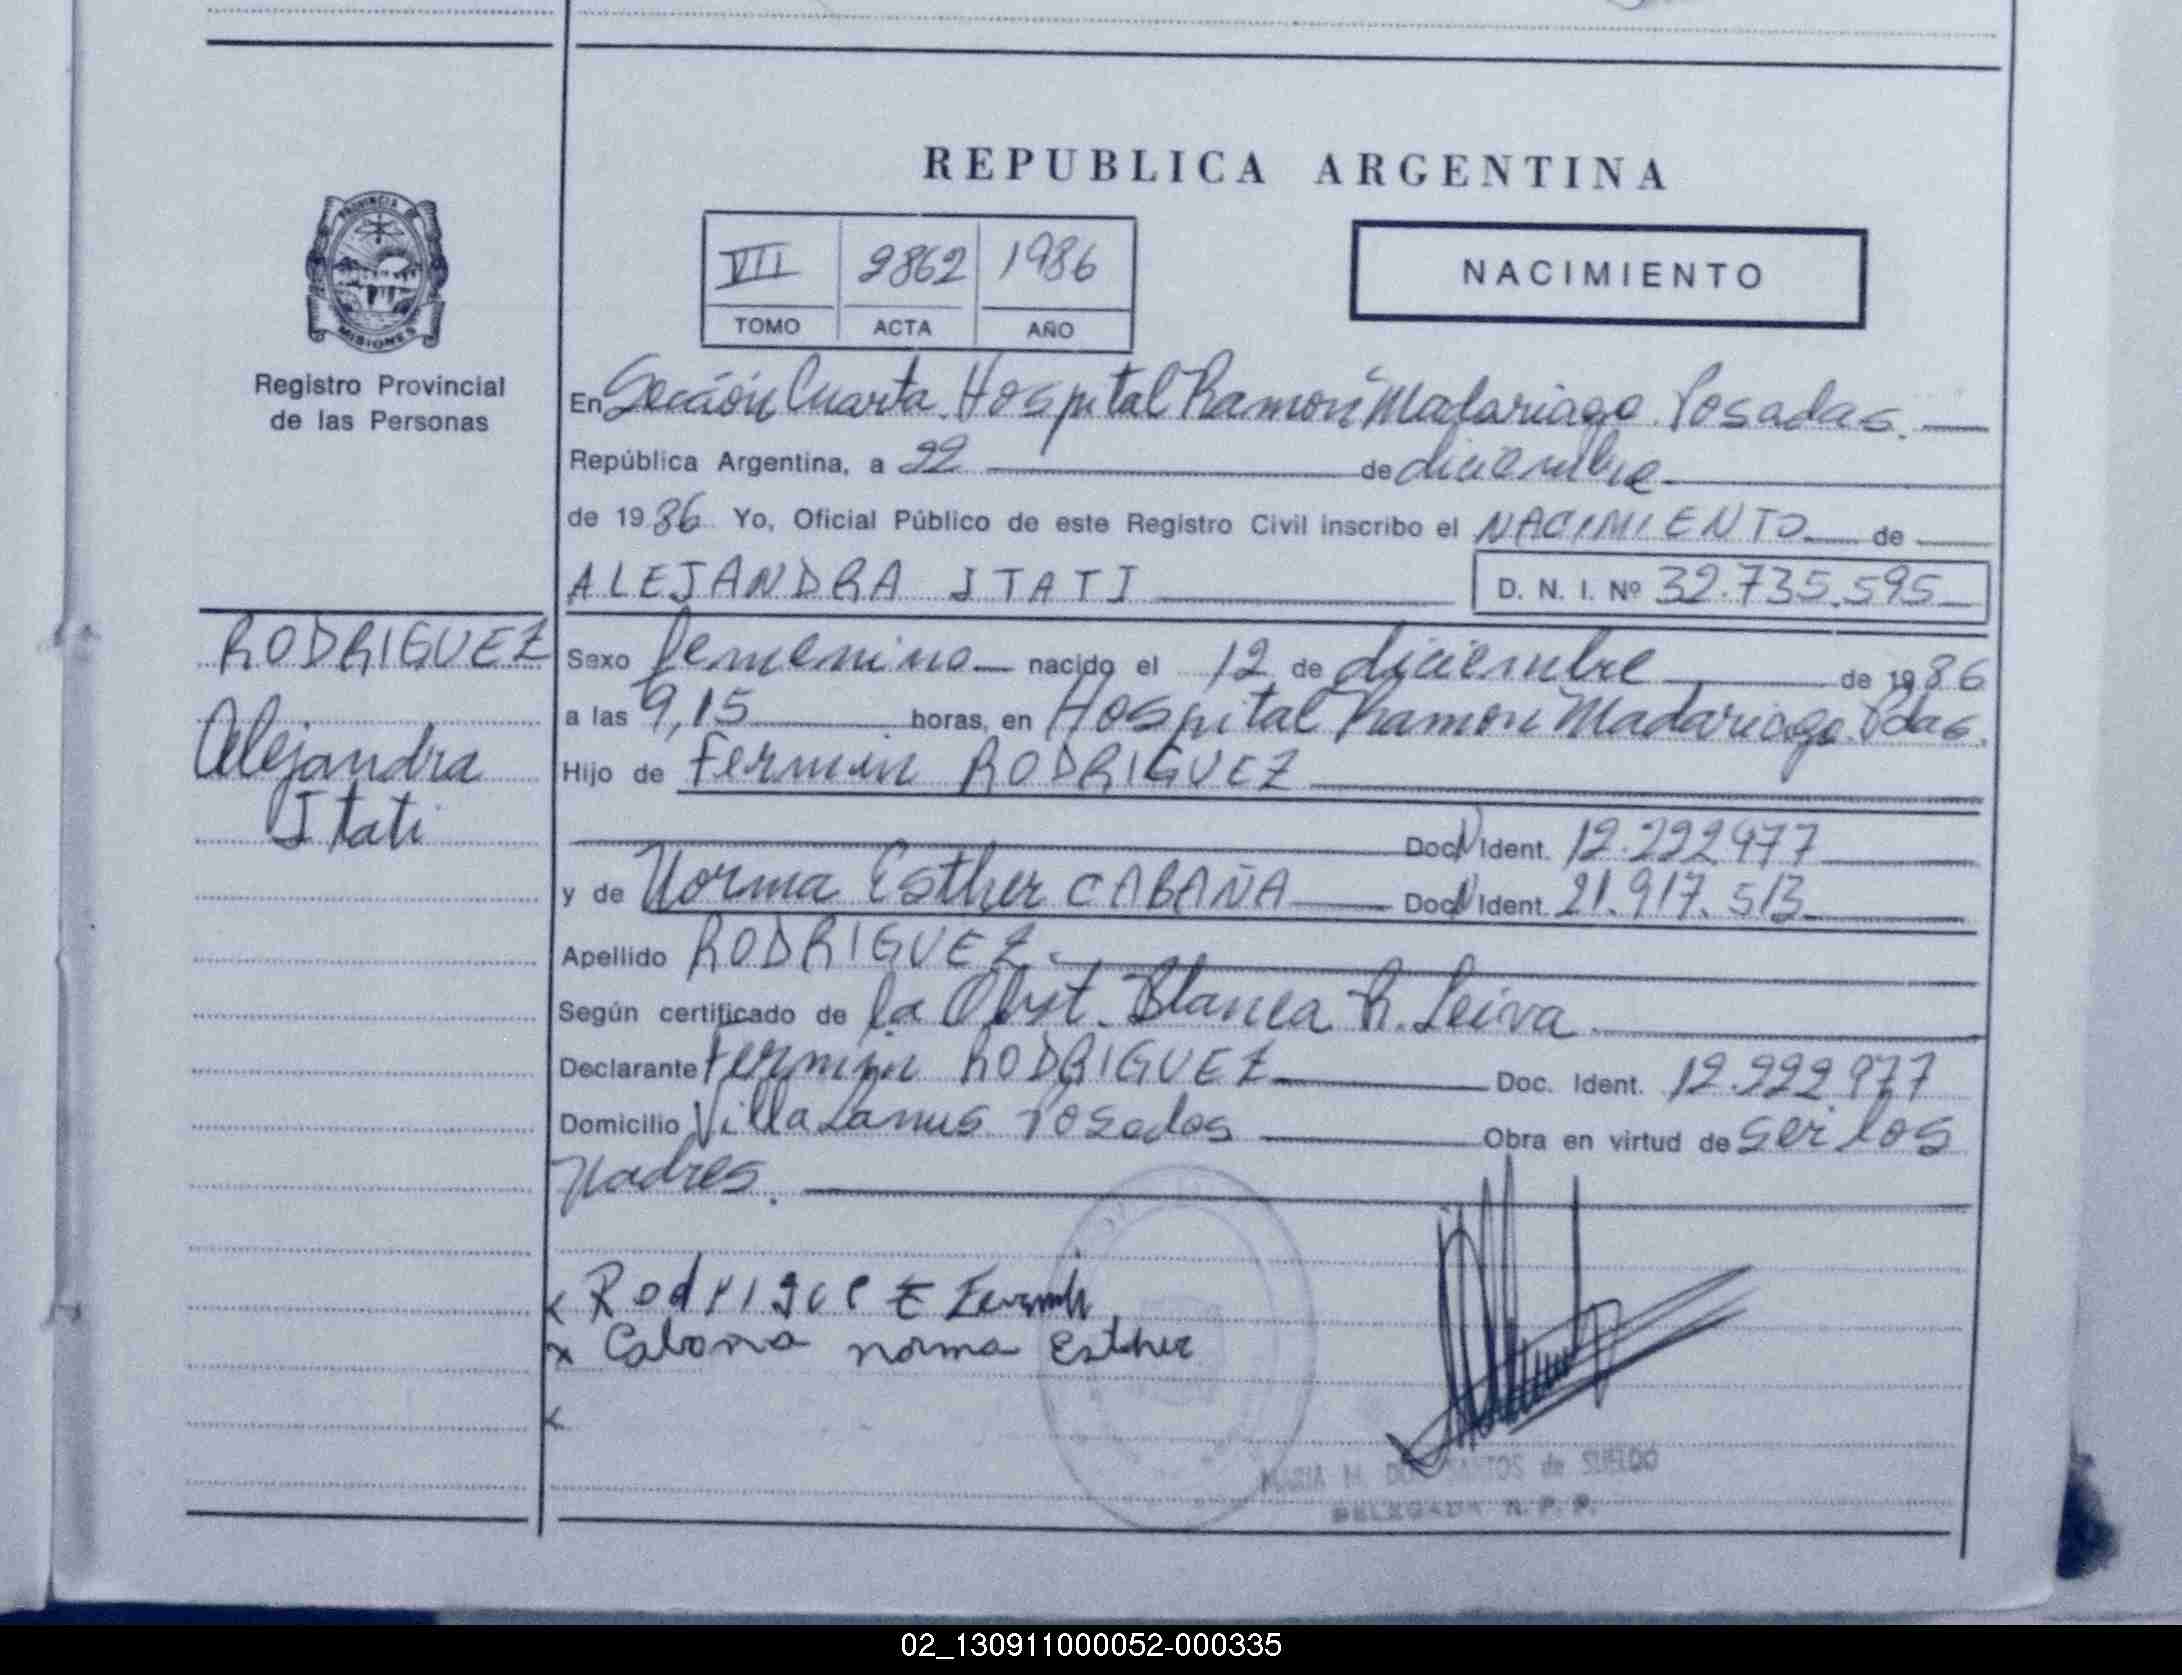 REPUBLICA ARGENTINA
PROVINCIA DE
MISIONES
Registro Provincial
de las Personas
VII 2862 1986
TOMO ACTA AÑO
NACIMIENTO
En Sección Cuarta Hospital Ramón Madariaga. Posadas.
República Argentina, a 22 de diciembre
de 1986 Yo, Oficial Público de este Registro Civil inscribo el NACIMIENTO de
ALEJANDRA ITATI D. N. I. Nº 32.735.595
RODRIGUEZ
Alejandra
Itati
Sexo femenino nacido el 12 de diciembre de 1986
a las 9,15 horas, en Hospital Ramon Madariaga. Pdas.
Hijo de Fermin RODRIGUEZ
Doc N Ident. 12.222977
y de Norma Esther CABAÑA Doc N Ident. 21.917.513
Apellido RODRIGUEZ.
Según certificado de la Obst. Blanca R. Leiva
Declarante Fermin RODRIGUEZ Doc. Ident. 12.222977
Domicilio Villa Lanus Posadas Obra en virtud de ser los
Padres.
x Rodrigue
x Cabana norma Esther
x
MARIA M. DOS SANTOS de SUELDO
DELEGADA R. P. P.
02_130911000052-000335